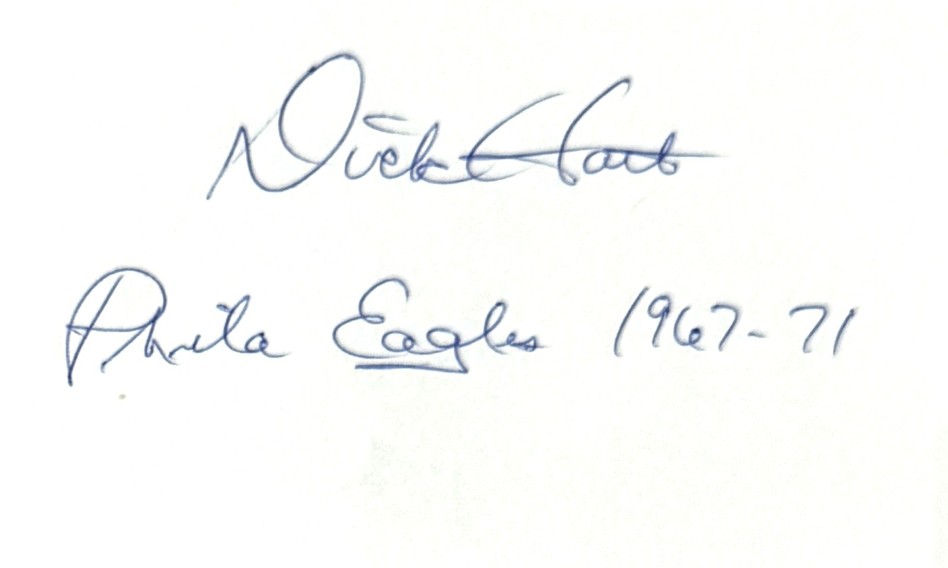 Dick Hart
Phila Eagles 1967-71